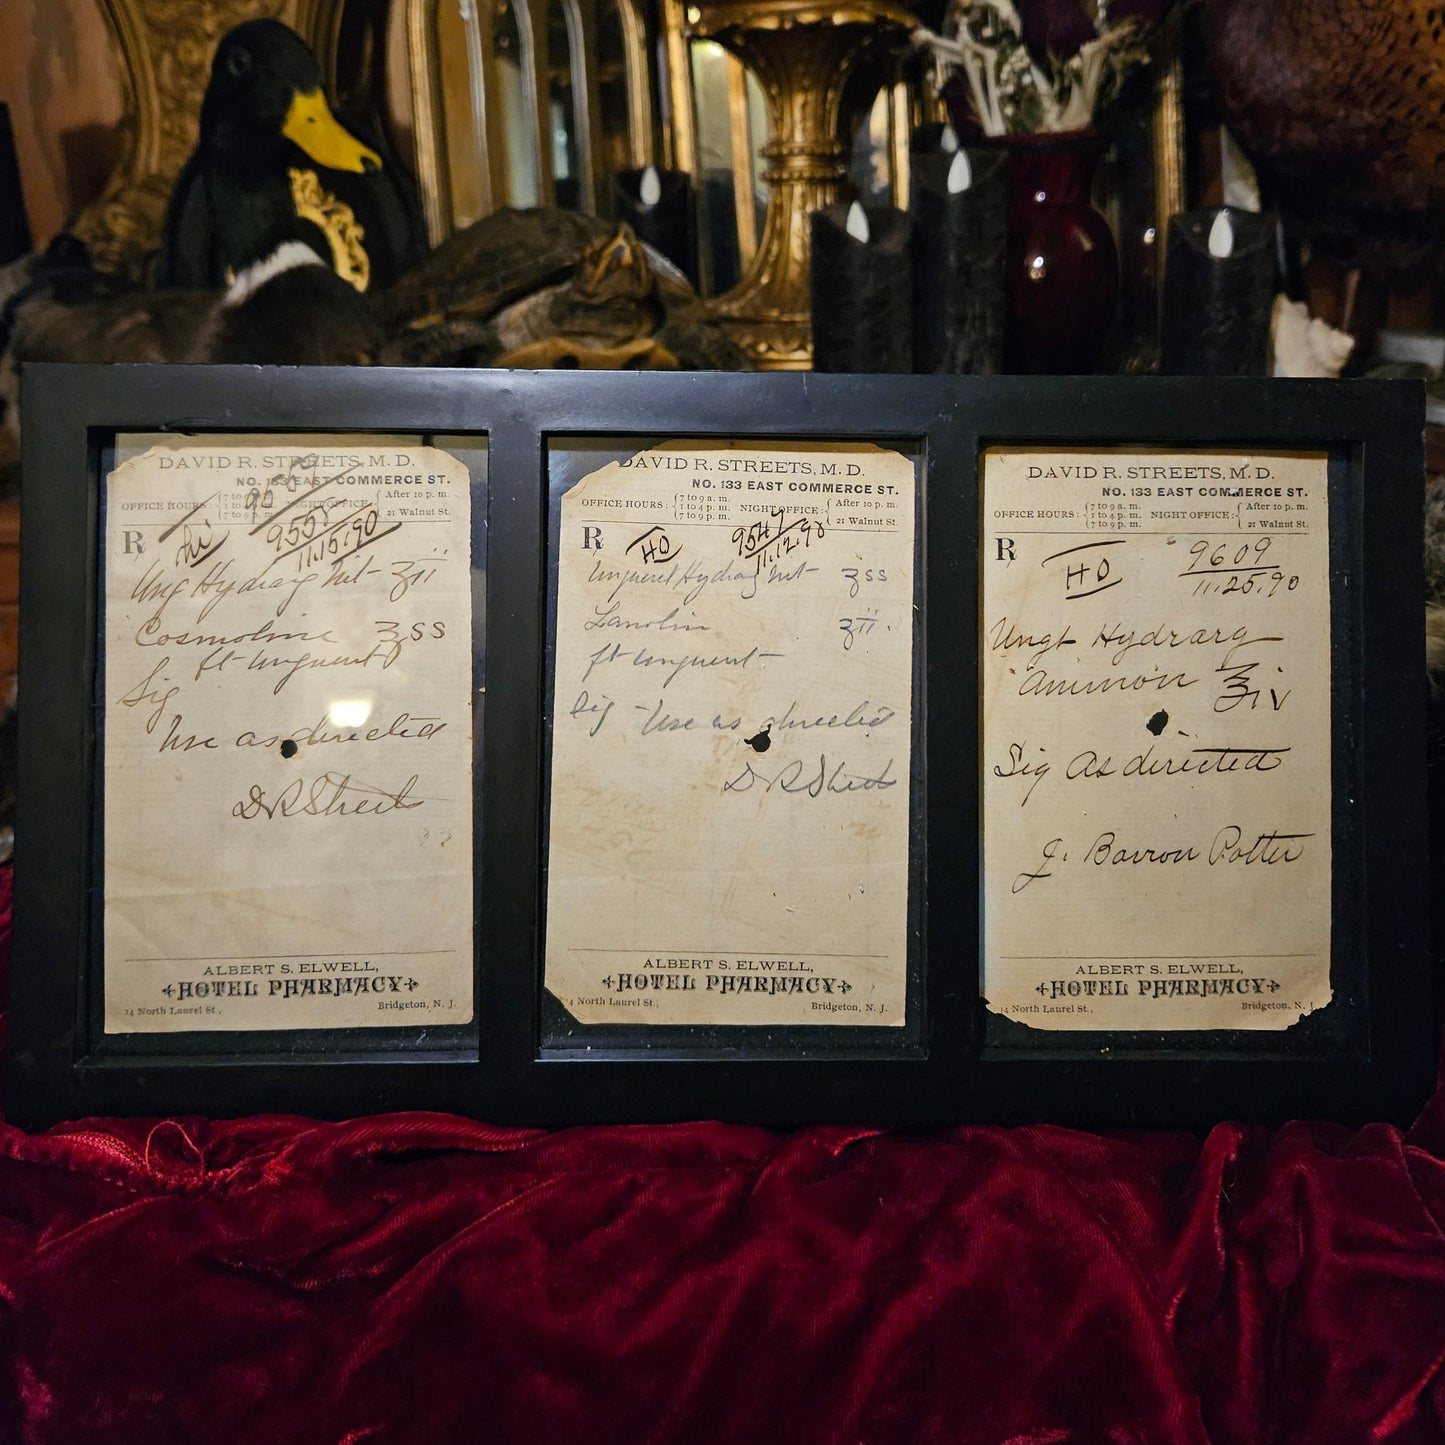 DAVID R. STREETS, M. D.
NO. 133 EAST COMMERCE ST.
OFFICE HOURS: { 7 to 9 a. m. 1 to 4 p. m. 7 to 9 p. m. NIGHT OFFICE: { After 10 p. m. 21 Walnut St.
R
9558
11.15.90
Ung Hydrarg Nit ʒii
Cosmoline ʒss
ft unguent
Sig
Use as directed
D R Streets
ALBERT S. ELWELL,
HOTEL PHARMACY
14 North Laurel St., Bridgeton, N. J.
DAVID R. STREETS, M. D.
NO. 133 EAST COMMERCE ST.
OFFICE HOURS: { 7 to 9 a. m. 1 to 4 p. m. 7 to 9 p. m. NIGHT OFFICE: { After 10 p. m. 21 Walnut St.
R
HO
9547
11.12.90
Unguent Hydrarg Nit ʒss
Lanolin ʒii.
ft unguent
Sig - Use as directed
D R Streets
ALBERT S. ELWELL,
HOTEL PHARMACY
14 North Laurel St., Bridgeton, N. J.
DAVID R. STREETS, M. D.
NO. 133 EAST COMMERCE ST.
OFFICE HOURS: { 7 to 9 a. m. 1 to 4 p. m. 7 to 9 p. m. NIGHT OFFICE: { After 10 p. m. 21 Walnut St.
R
HO
9609
11.25.90
Ungt Hydrarg
Ammon ʒiv
Sig As directed
J. Barron Potter
ALBERT S. ELWELL,
HOTEL PHARMACY
14 North Laurel St., Bridgeton, N. J.